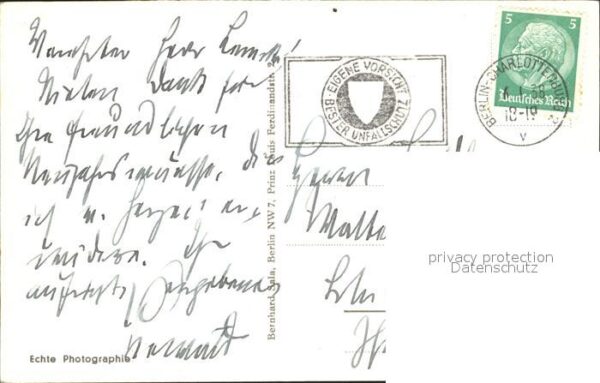 Verehrter Herr
Vielen Dank für
Ihre freundlichen
Neujahrswünsche, die
ich v. Herzen er-
widere. Ihr
aufrichtig ergebener
Echte Photographie
Bernhard Sala, Berlin NW 7, Prinz Louis Ferdinandstr. 2
EIGENE VORSICHT
BESTER UNFALLSCHUTZ
5 5
Deutsches Reich
BERLIN-CHARLOTTENBURG 2
18-19
v
Herrn
privacy protection
Datenschutz